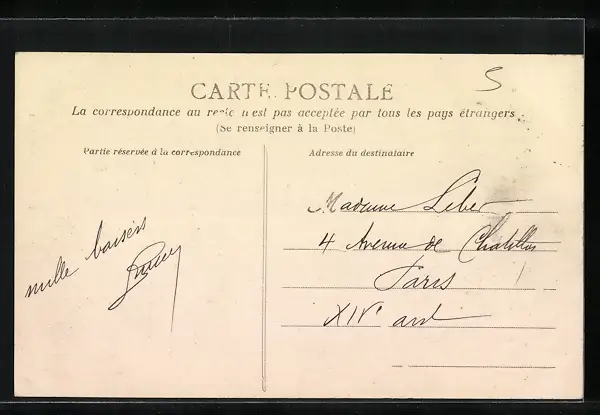 5
CARTE POSTALE
La correspondance au recto n'est pas acceptée par tous les pays étrangers.
(Se renseigner à la Poste)
Partie réservée à la correspondance
Adresse du destinataire
mille baisers
Madame Leber
4 Avenue de Chatillon
Paris
XIVe ard